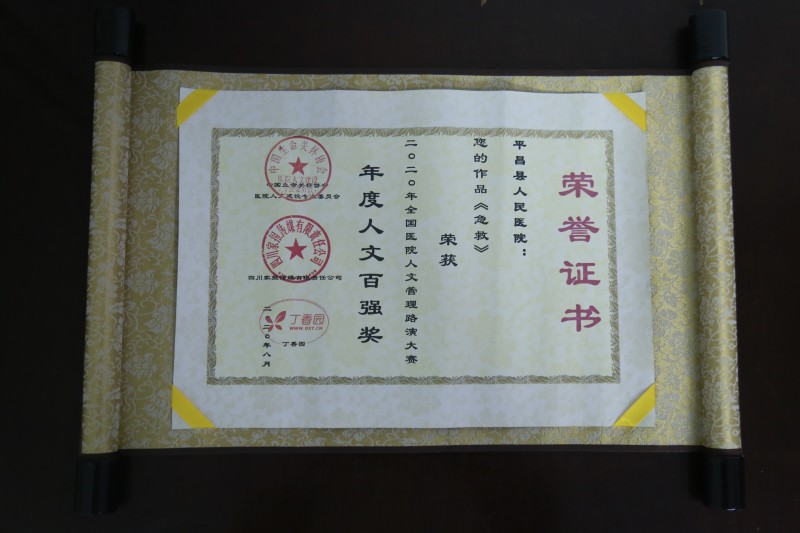 荣誉证书
平昌县人民医院：
您的作品《急救》
荣获
二〇二〇年全国医院人文管理路演大赛
年度人文百强奖
中国生命关怀协会
医院人文建设
中国生命关怀协会
医院人文建设专业委员会
四川家湿传媒有限责任公司
丁香园
WWW.DXY.CN
丁香园
二〇二〇年八月